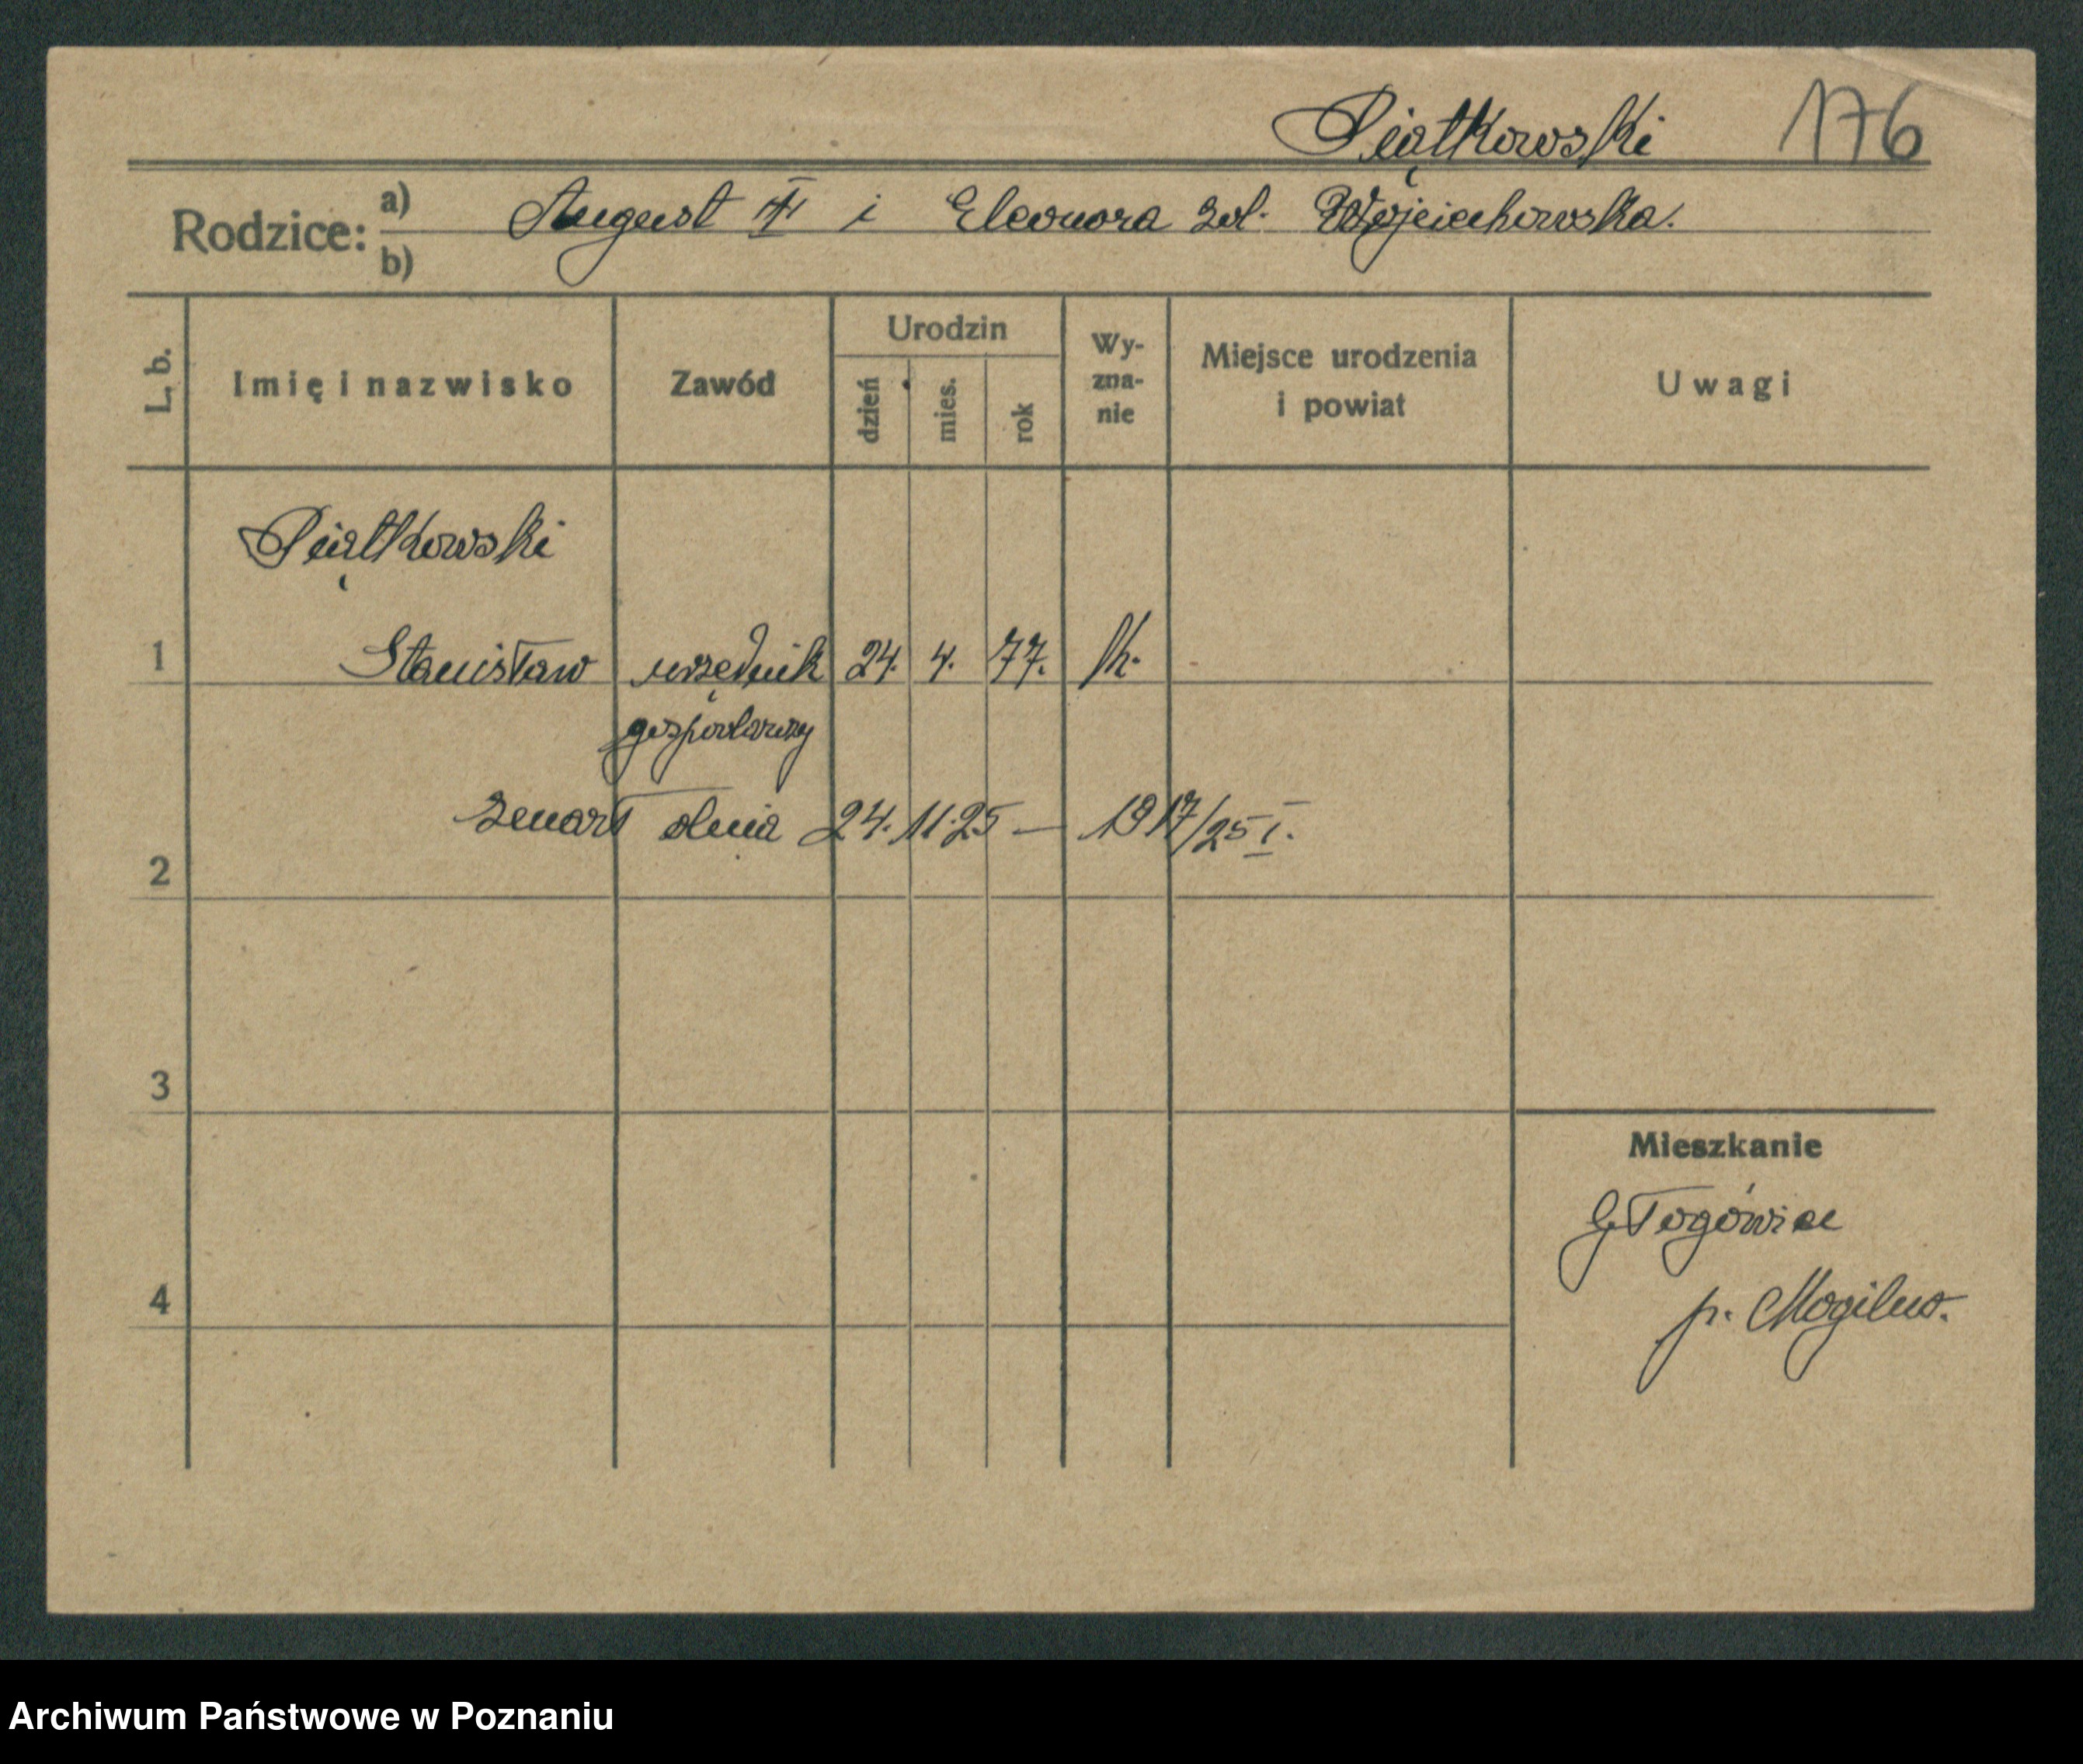 Piątkowski 176
Rodzice: a) August II i Eleonora zd. Wojciechowska.
b)
L. b. Imię i nazwisko Zawód Urodzin dzień mies. rok Wy-zna-nie Miejsce urodzenia i powiat Uwagi
Piątkowski
1 Stanisław urzędnik 24. 4. 77. k.
gospodarczy
zmarł dnia 24.11.25 — 1917/25 I.
2
3
Mieszkanie
Głogówiec
4 p. Mogilno.
Archiwum Państwowe w Poznaniu